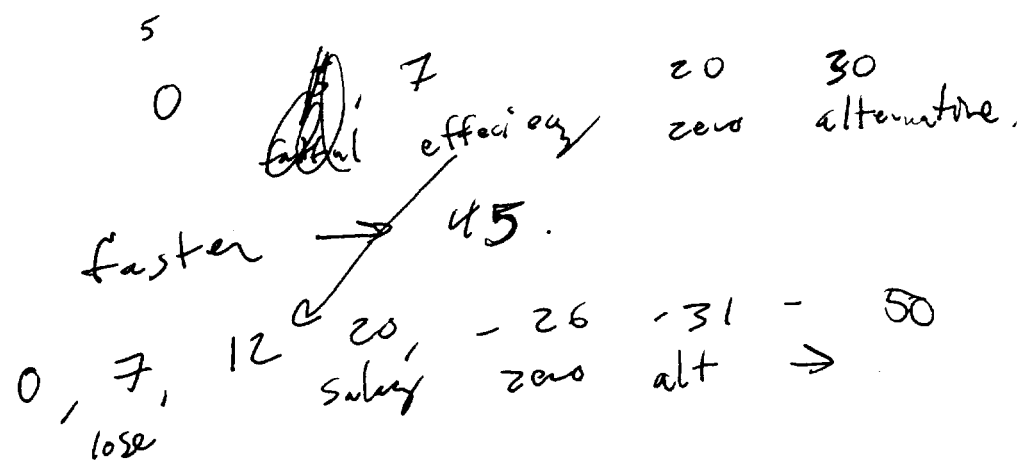 5
0 7 20 30
effeciecy zero alternative,
faster → 45.
0, 7, 12 20, - 26 - 31 - 50
lose salary zero alt →